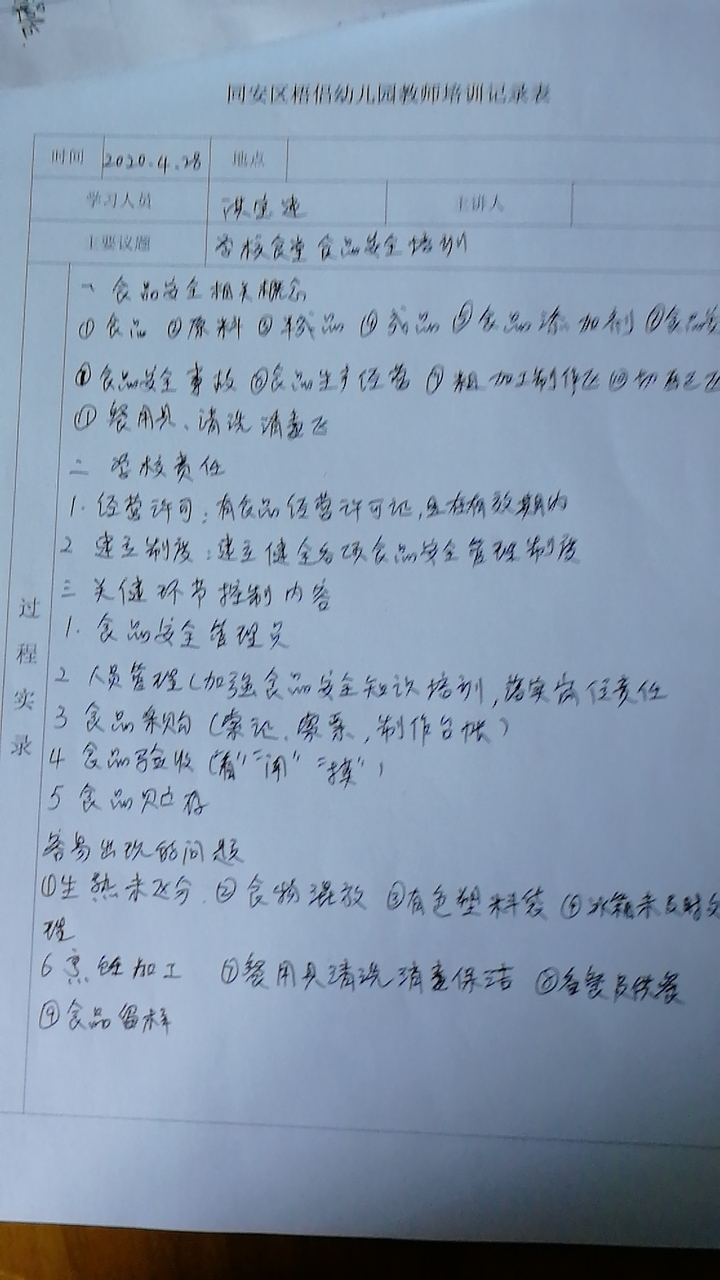 同安区梧侣幼儿园教师培训记录表
时间 2020.4.28 地点
学习人员 洪 主讲人
主要议题 学校食堂食品安全培训
一 食品安全相关概念
①食品 ②原料 ③半成品 ④成品 ⑤食品添加剂 食品安
食品安全事故 食品生产经营 ⑨粗加工制作区 ⑩切配区
⑪餐用具、清洗消毒区
二 学校责任
1. 经营许可:有食品经营许可证,且在有效期内
2 建立制度:建立健全各项食品安全管理制度
三 关健环节控制内容
1. 食品安全管理员
2 人员管理(加强食品安全知识培训,落实岗位责任
3 食品采购(索证、索票,制作台帐)
4 食品验收(一看"二闻"三摸")
5 食品贮存
容易出现的问题
①生熟未区分 ②食物混放 ③有色塑料袋 ④冰箱未及时处
理
6 烹饪加工 ⑦餐用具清洗消毒保洁 ⑧备餐及供餐
⑨食品留样
过程实录